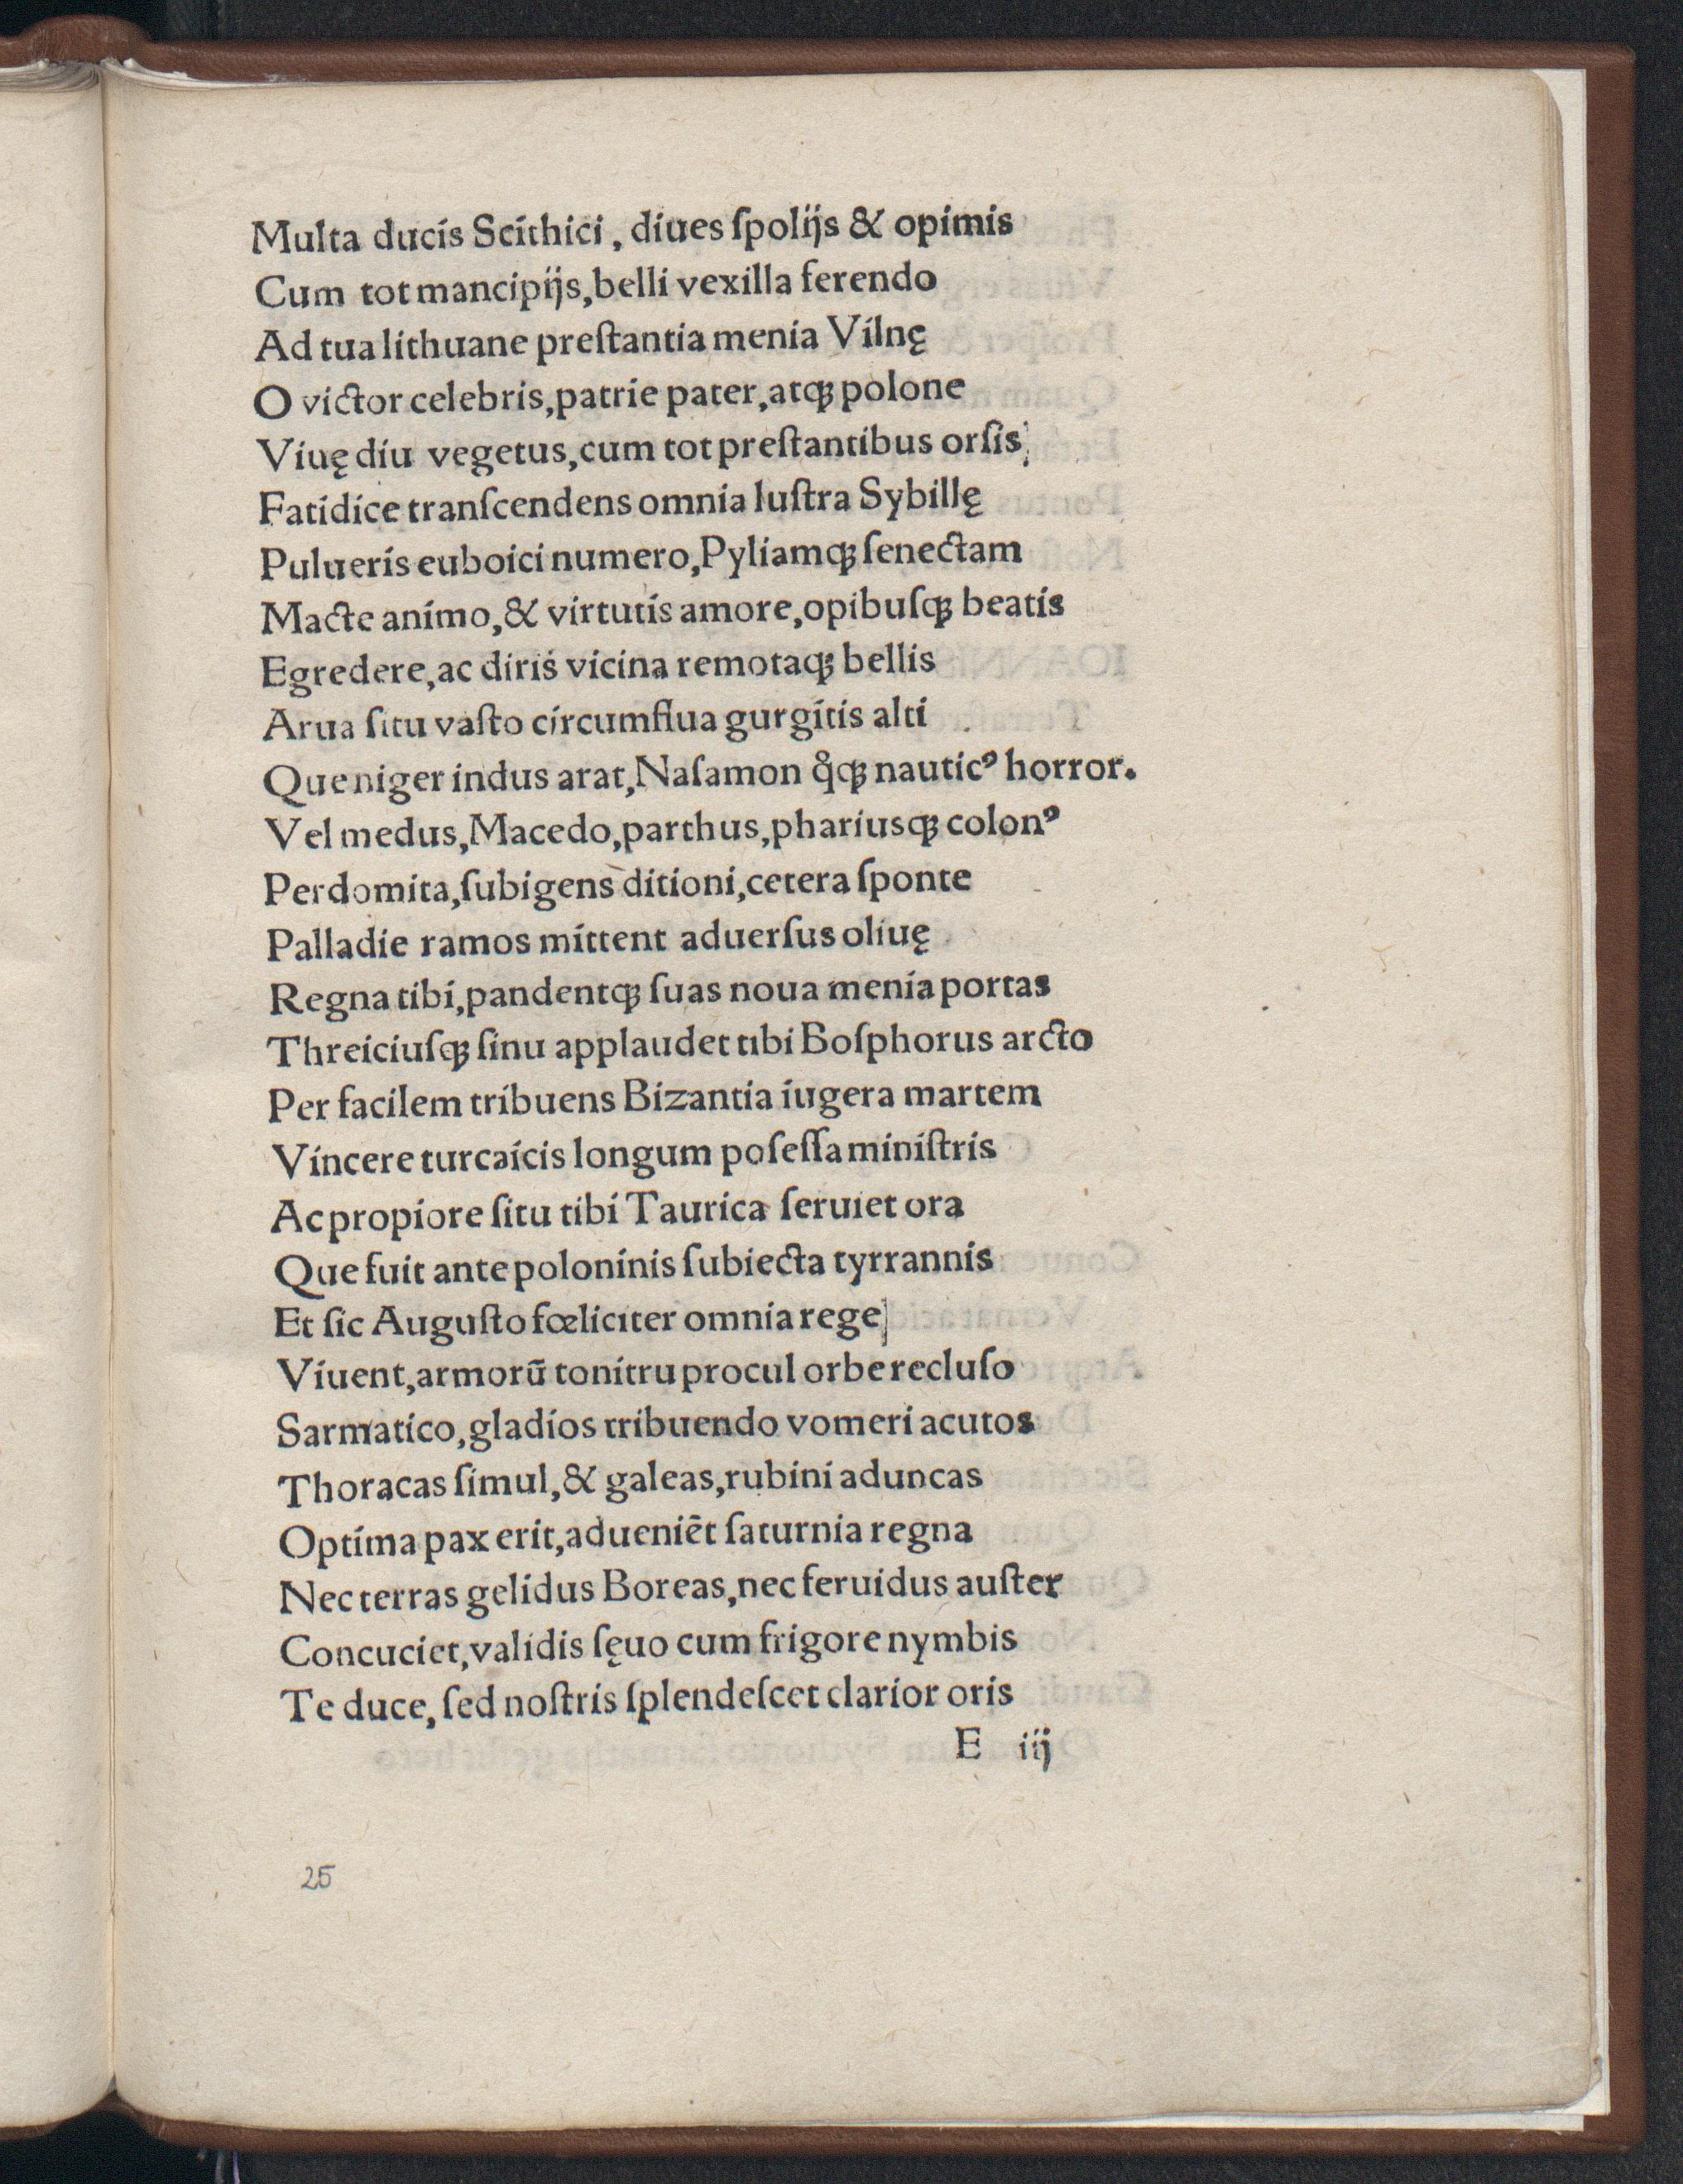 Multa ducis Scithici, diues ſpolijs & opimis
Cum tot mancipijs, belli vexilla ferendo
Ad tua lithuane preſtantia menia Vilnę
O victor celebris, patrie pater, atqꝫ polone
Viuę diu vegetus, cum tot preſtantibus orſis
Fatidice tranſcendens omnia luſtra Sybillę
Pulueris euboici numero, Pyliamqꝫ ſenectam
Macte animo, & virtutis amore, opibuſqꝫ beatis
Egredere, ac diris vicina remotaqꝫ bellis
Arua ſitu vaſto circumflua gurgitis alti
Que niger indus arat, Naſamon q̊qꝫ nauticꝰ horror.
Vel medus, Macedo, parthus, phariusqꝫ colonꝰ
Perdomita, ſubigens ditioni, cetera ſponte
Palladie ramos mittent aduerſus oliuę
Regna tibi, pandentqꝫ ſuas noua menia portas
Threiciuſqꝫ ſinu applaudet tibi Boſphorus arcto
Per facilem tribuens Bizantia iugera martem
Vincere turcaicis longum poſeſſa miniſtris
Ac propiore ſitu tibi Taurica ſeruiet ora
Que fuit ante poloninis ſubiecta tyrrannis
Et ſic Auguſto fœliciter omnia rege
Viuent, armorū tonitru procul orbe recluſo
Sarmatico, gladios tribuendo vomeri acutos
Thoracas ſimul, & galeas, rubini aduncas
Optima pax erit, adueniēt ſaturnia regna
Nec terras gelidus Boreas, nec feruidus auſter
Concuciet, validis ſęuo cum frigore nymbis
Te duce, ſed noſtris ſplendeſcet clarior oris
E iij
25